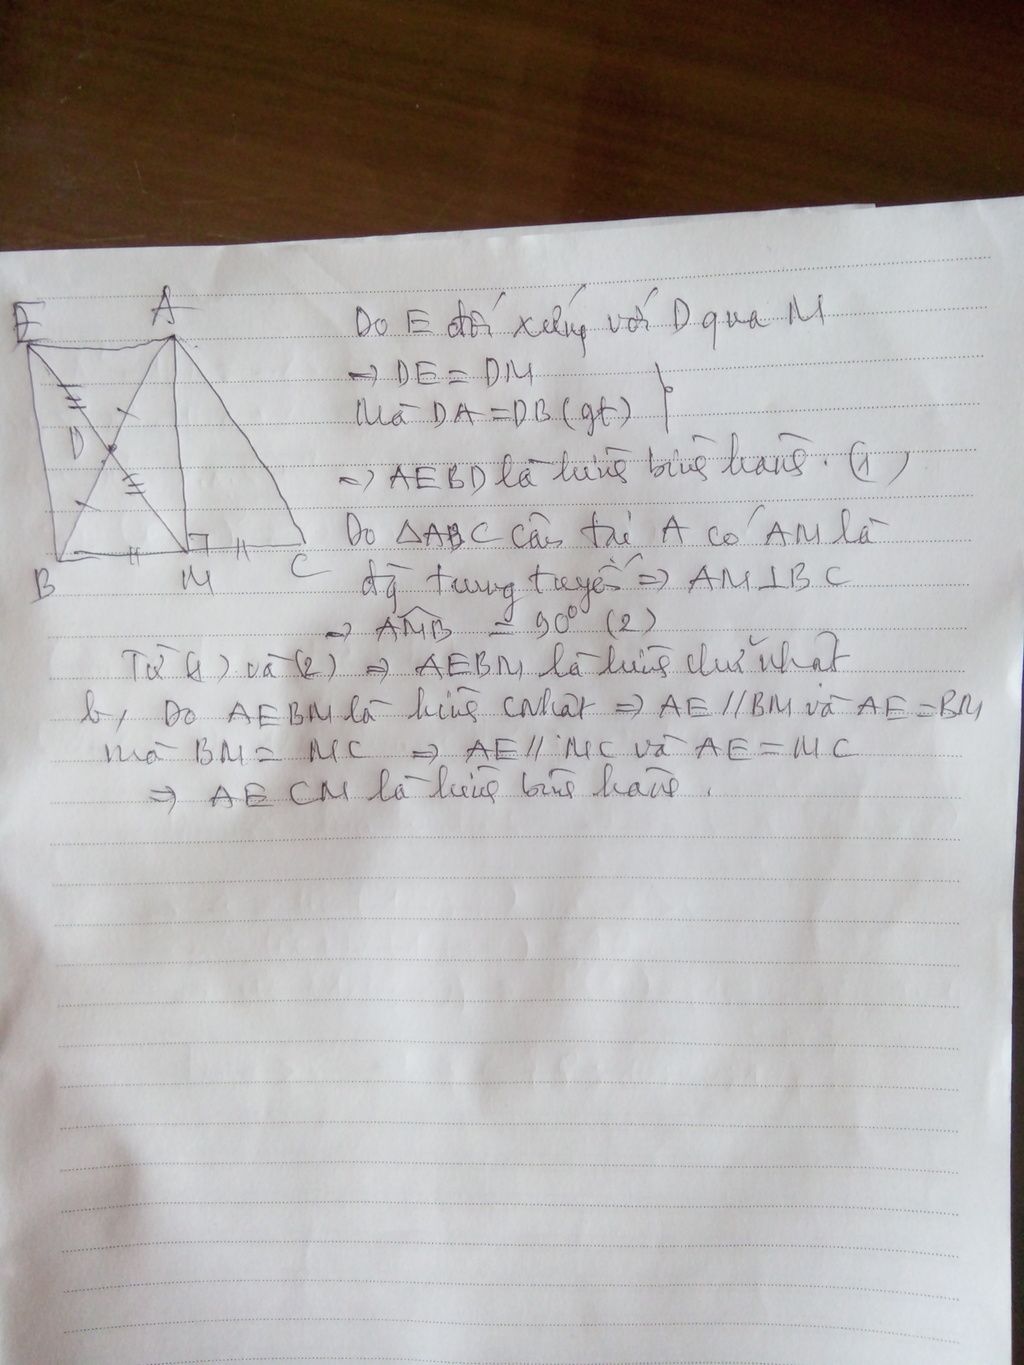 E A
D
B M C
Do E đối xứng với D qua M
=> DE = DM
Mà DA = DB (gt)
=> AEBD là hình bình hành. (1)
Do △ABC cân tại A có AM là
đg trung tuyến => AM⊥BC
=> AMB = 90° (2)
Từ (1) và (2) => AEBM là hình chữ nhật
b, Do AEBM là hình cnhật => AE//BM và AE=BM
Mà BM = MC => AE// MC và AE = MC
=> AECM là hình bình hành.